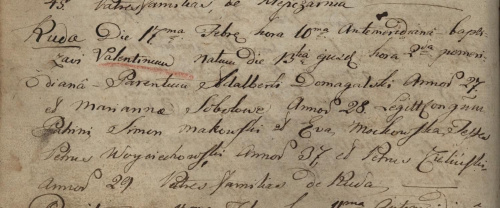 43. Patresfamilias de Rzepczarnia
Ruda Die 17ma Febr: hora 10ma Antemeridianâ bapti-
zavi Valentinum natum die 13tiâ ejusd. hora 2da pomeri-
dianâ Parentum Adalberti Domagalski Annor 27.
et Marianna Sobolowe Annor 28. Legitt Conjuu
Patrini Simon Makowski et Eva Mockowska, Testes
Petrus Woyciechowski Annor 37. et Petrus
Annor 29 Patres familias de Ruda